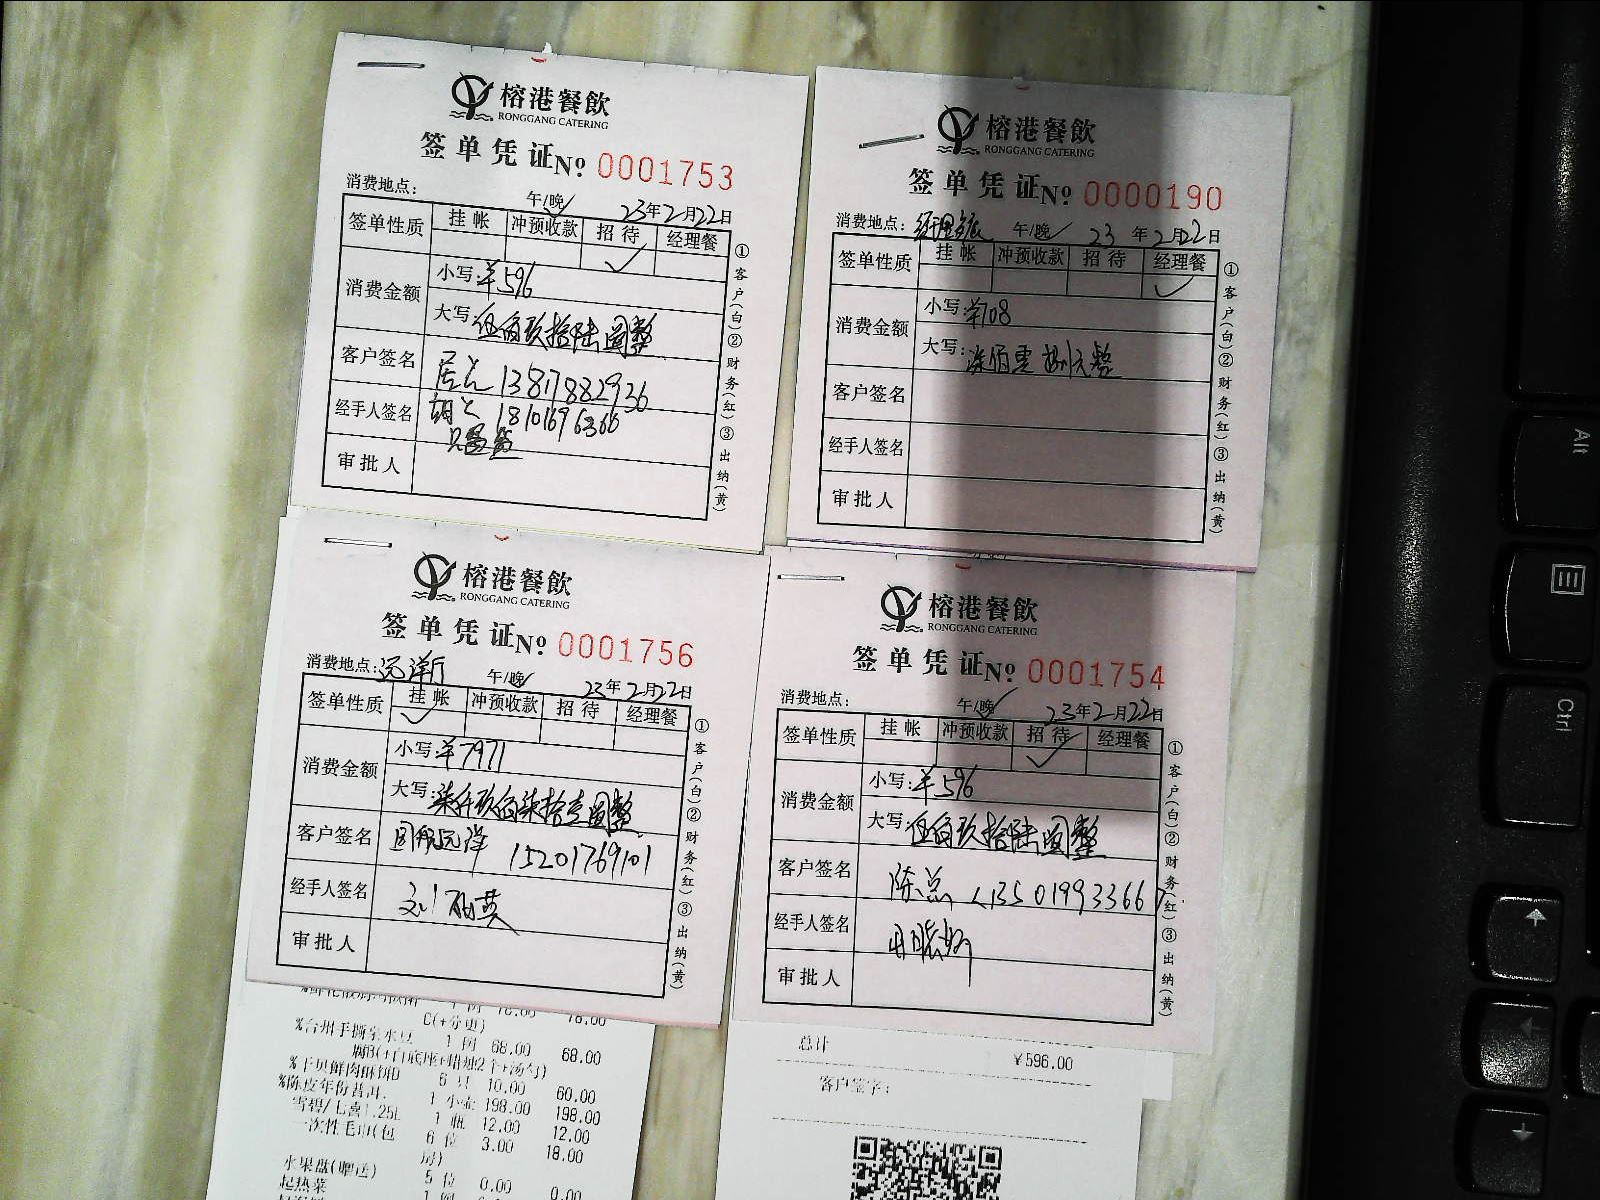 榕港餐飲
RONGGANG CATERING
签单凭证No 0001753
消费地点： 午/晚✓ 23年2月22日
签单性质 挂帐 冲预收款 招待 经理餐
✓
消费金额 小写：¥596
大写：伍佰玖拾陆圆整
客户签名 13817882936
经手人签名 18101696366
审批人
①客户(白)②财务(红)③出纳(黄)
榕港餐飲
RONGGANG CATERING
签单凭证No 0000190
消费地点：经理餐 午/晚✓ 23年2月22日
签单性质 挂帐 冲预收款 招待 经理餐
✓
消费金额 小写：¥108
大写：
客户签名
经手人签名
审批人
①客户(白)②财务(红)③出纳(黄)
榕港餐飲
RONGGANG CATERING
签单凭证No 0001756
消费地点：远洋厅 午/晚✓ 23年2月22日
签单性质 挂帐 冲预收款 招待 经理餐
✓
消费金额 小写：¥7971
大写：柒仟玖佰柒拾壹圆整
客户签名 远洋 15201769101
经手人签名
审批人
①客户(白)②财务(红)③出纳(黄)
榕港餐飲
RONGGANG CATERING
签单凭证No 0001754
消费地点： 午/晚✓ 23年2月22日
签单性质 挂帐 冲预收款 招待 经理餐
✓
消费金额 小写：¥596
大写：伍佰玖拾陆圆整
客户签名 陈总 13501993366
经手人签名
审批人
①客户(白)②财务(红)③出纳(黄)
18.00
C(+分更)
%台州手撕 水豆 1 例 68.00 68.00
6 只 10.00 60.00
%陈皮年份普洱. 1 小壶 198.00 198.00
雪碧/七喜1.25L 1 瓶 12.00 12.00
一次性毛巾(包 6 位 3.00 18.00
房)
水果盘(赠送) 5 位 0.00 0.00
起热菜 1 例
总计 ¥596.00
客户签字：
Alt
Ctrl